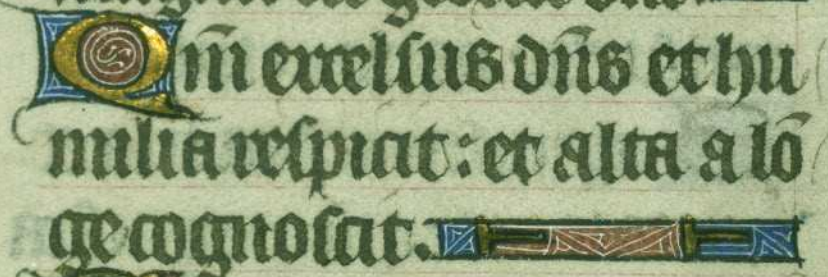 Qm̄ excelsus dn̄s et hu
milia respicit: et alta a lō
ge cognoscit.